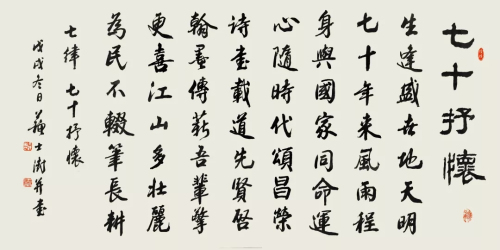 七十抒懷
生逢盛世地天明
七十年來風雨程
身與國家同命運
心隨時代頌昌榮
詩書載道先賢啓
翰墨傳薪吾輩擎
更喜江山多壯麗
為民不輟筆長耕
七律 七十抒懷
戊戌冬日蘇士澍并書